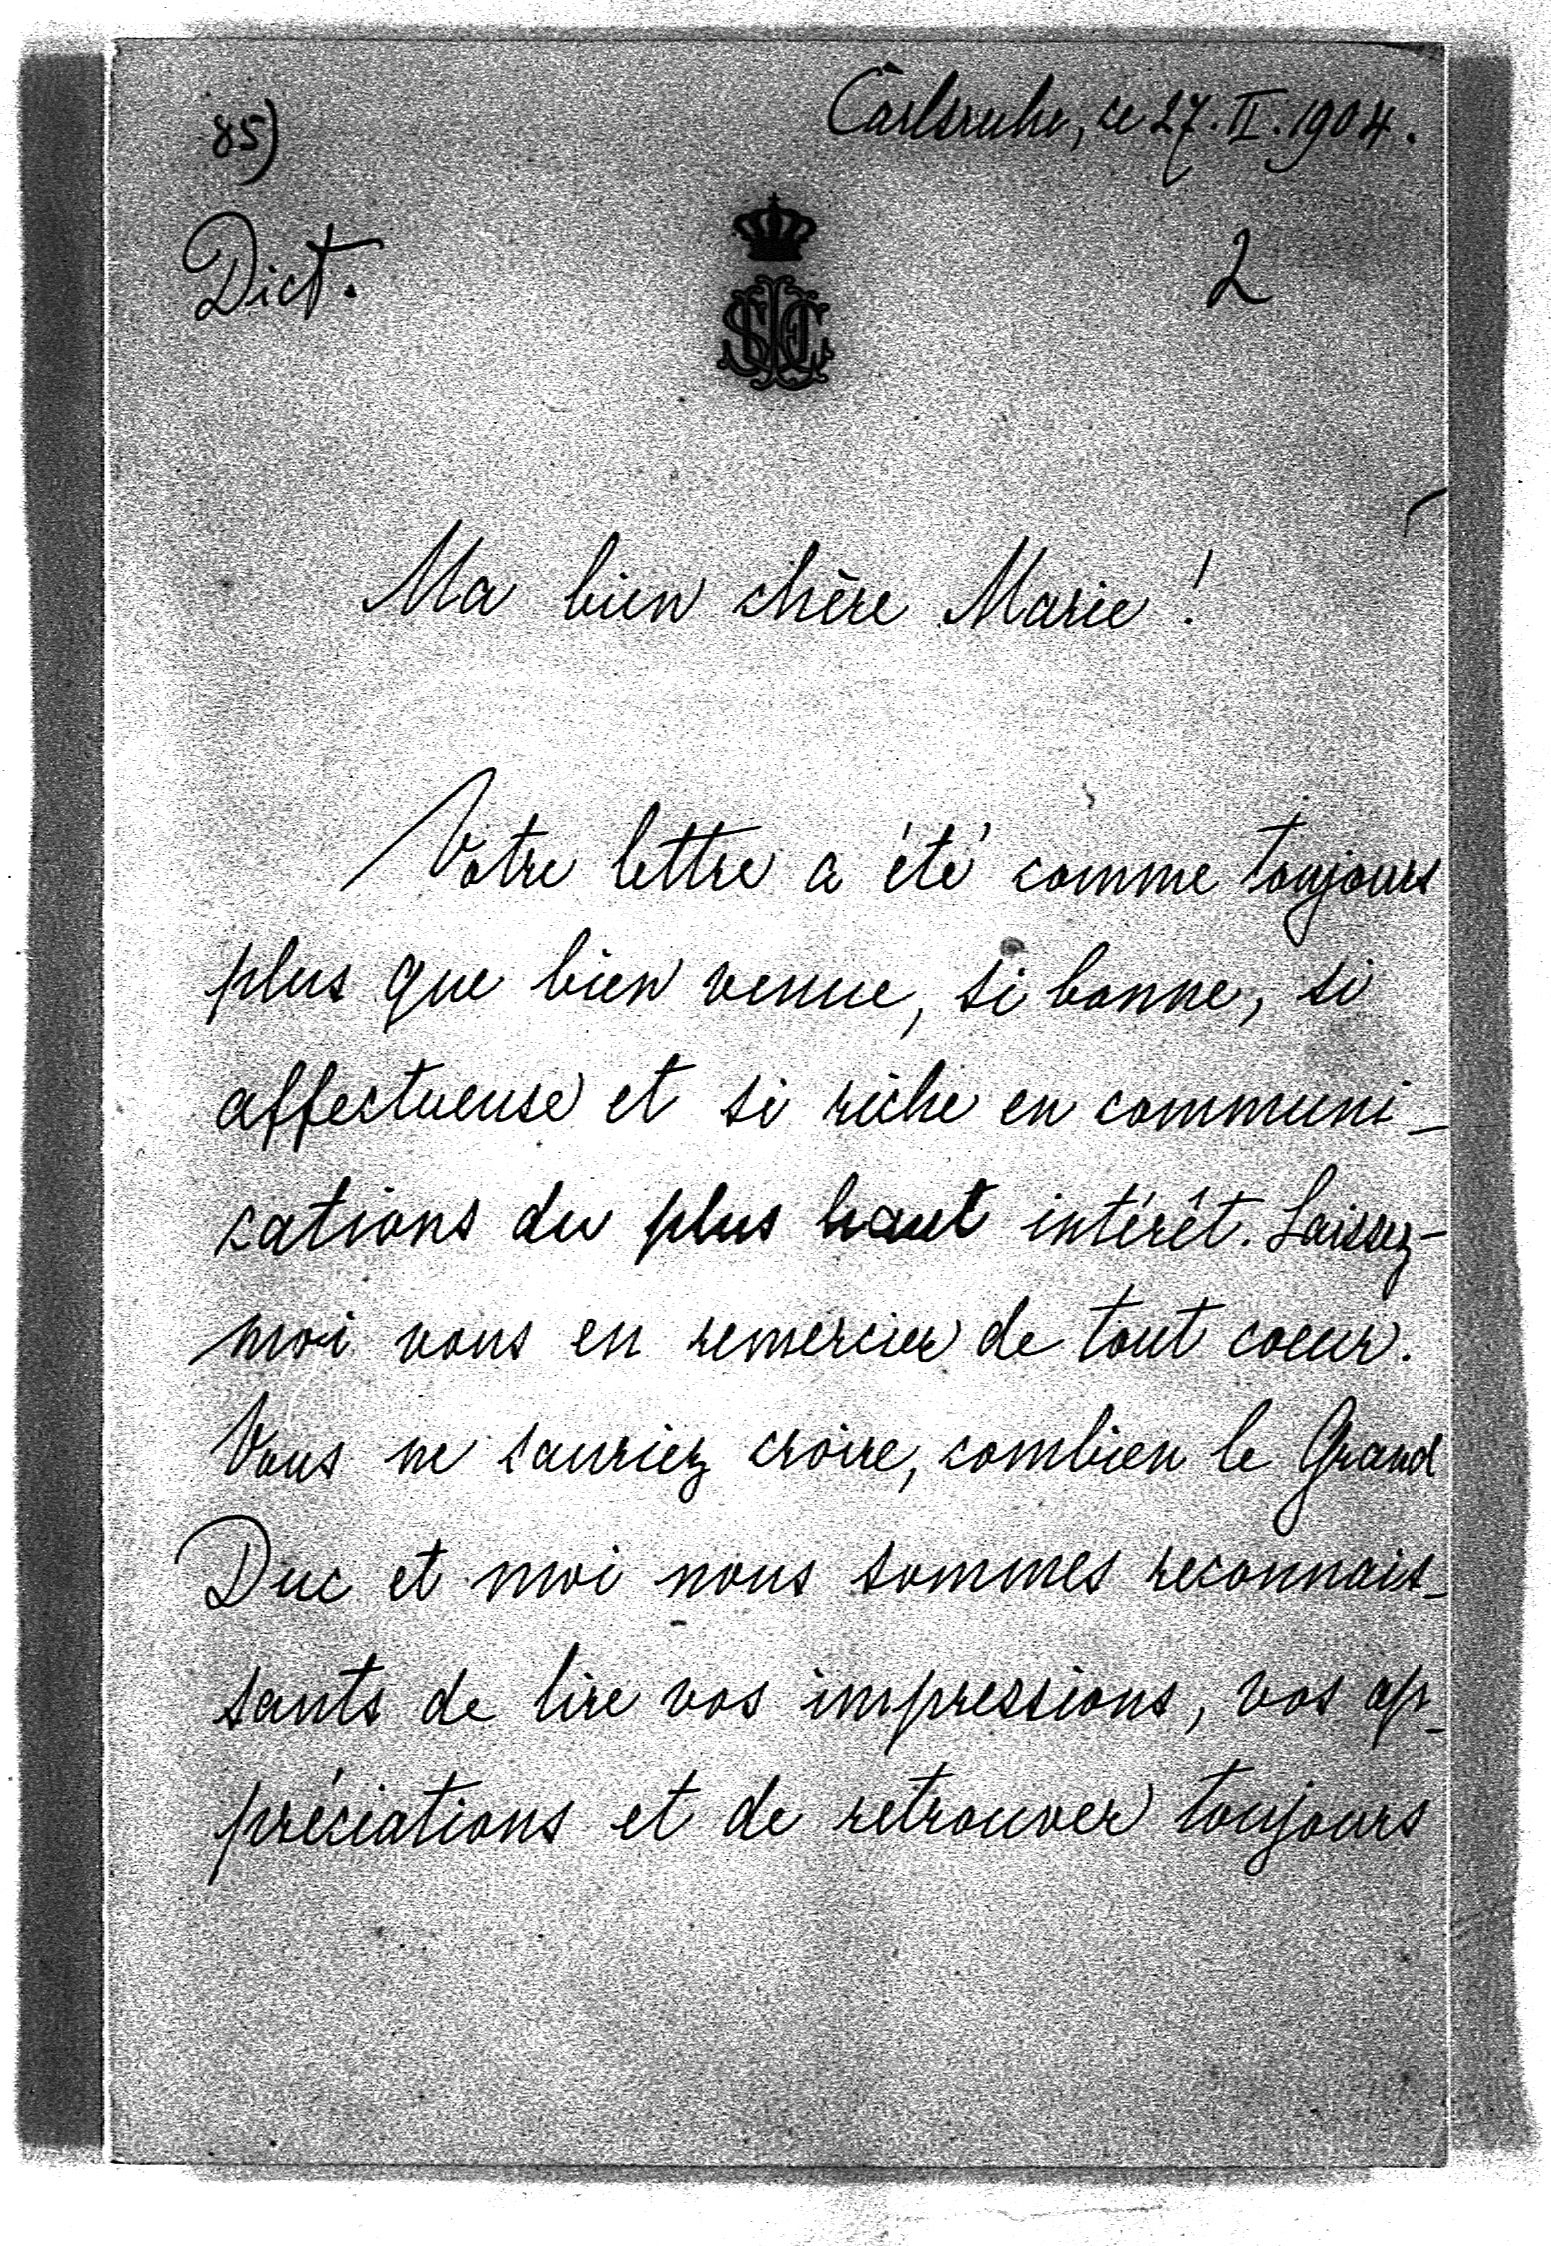 85)
Carlsruhe, ce 27. II. 1904.
Dict.
2
Ma bien chère Marie!
Votre lettre a été comme toujours
plus que bien venue, si bonne, si
affectueuse et si riche en communi-
cations du plus haut intérêt. Laissez-
moi vous en remercier de tout coeur.
Vous ne sauriez croire, combien le Grand
Duc et moi nous sommes reconnais-
sants de lire vos impressions, vos ap-
préciations et de retrouver toujours